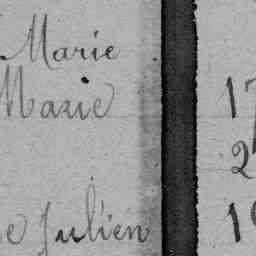 Marie
Marie 17
2
e Julien 1